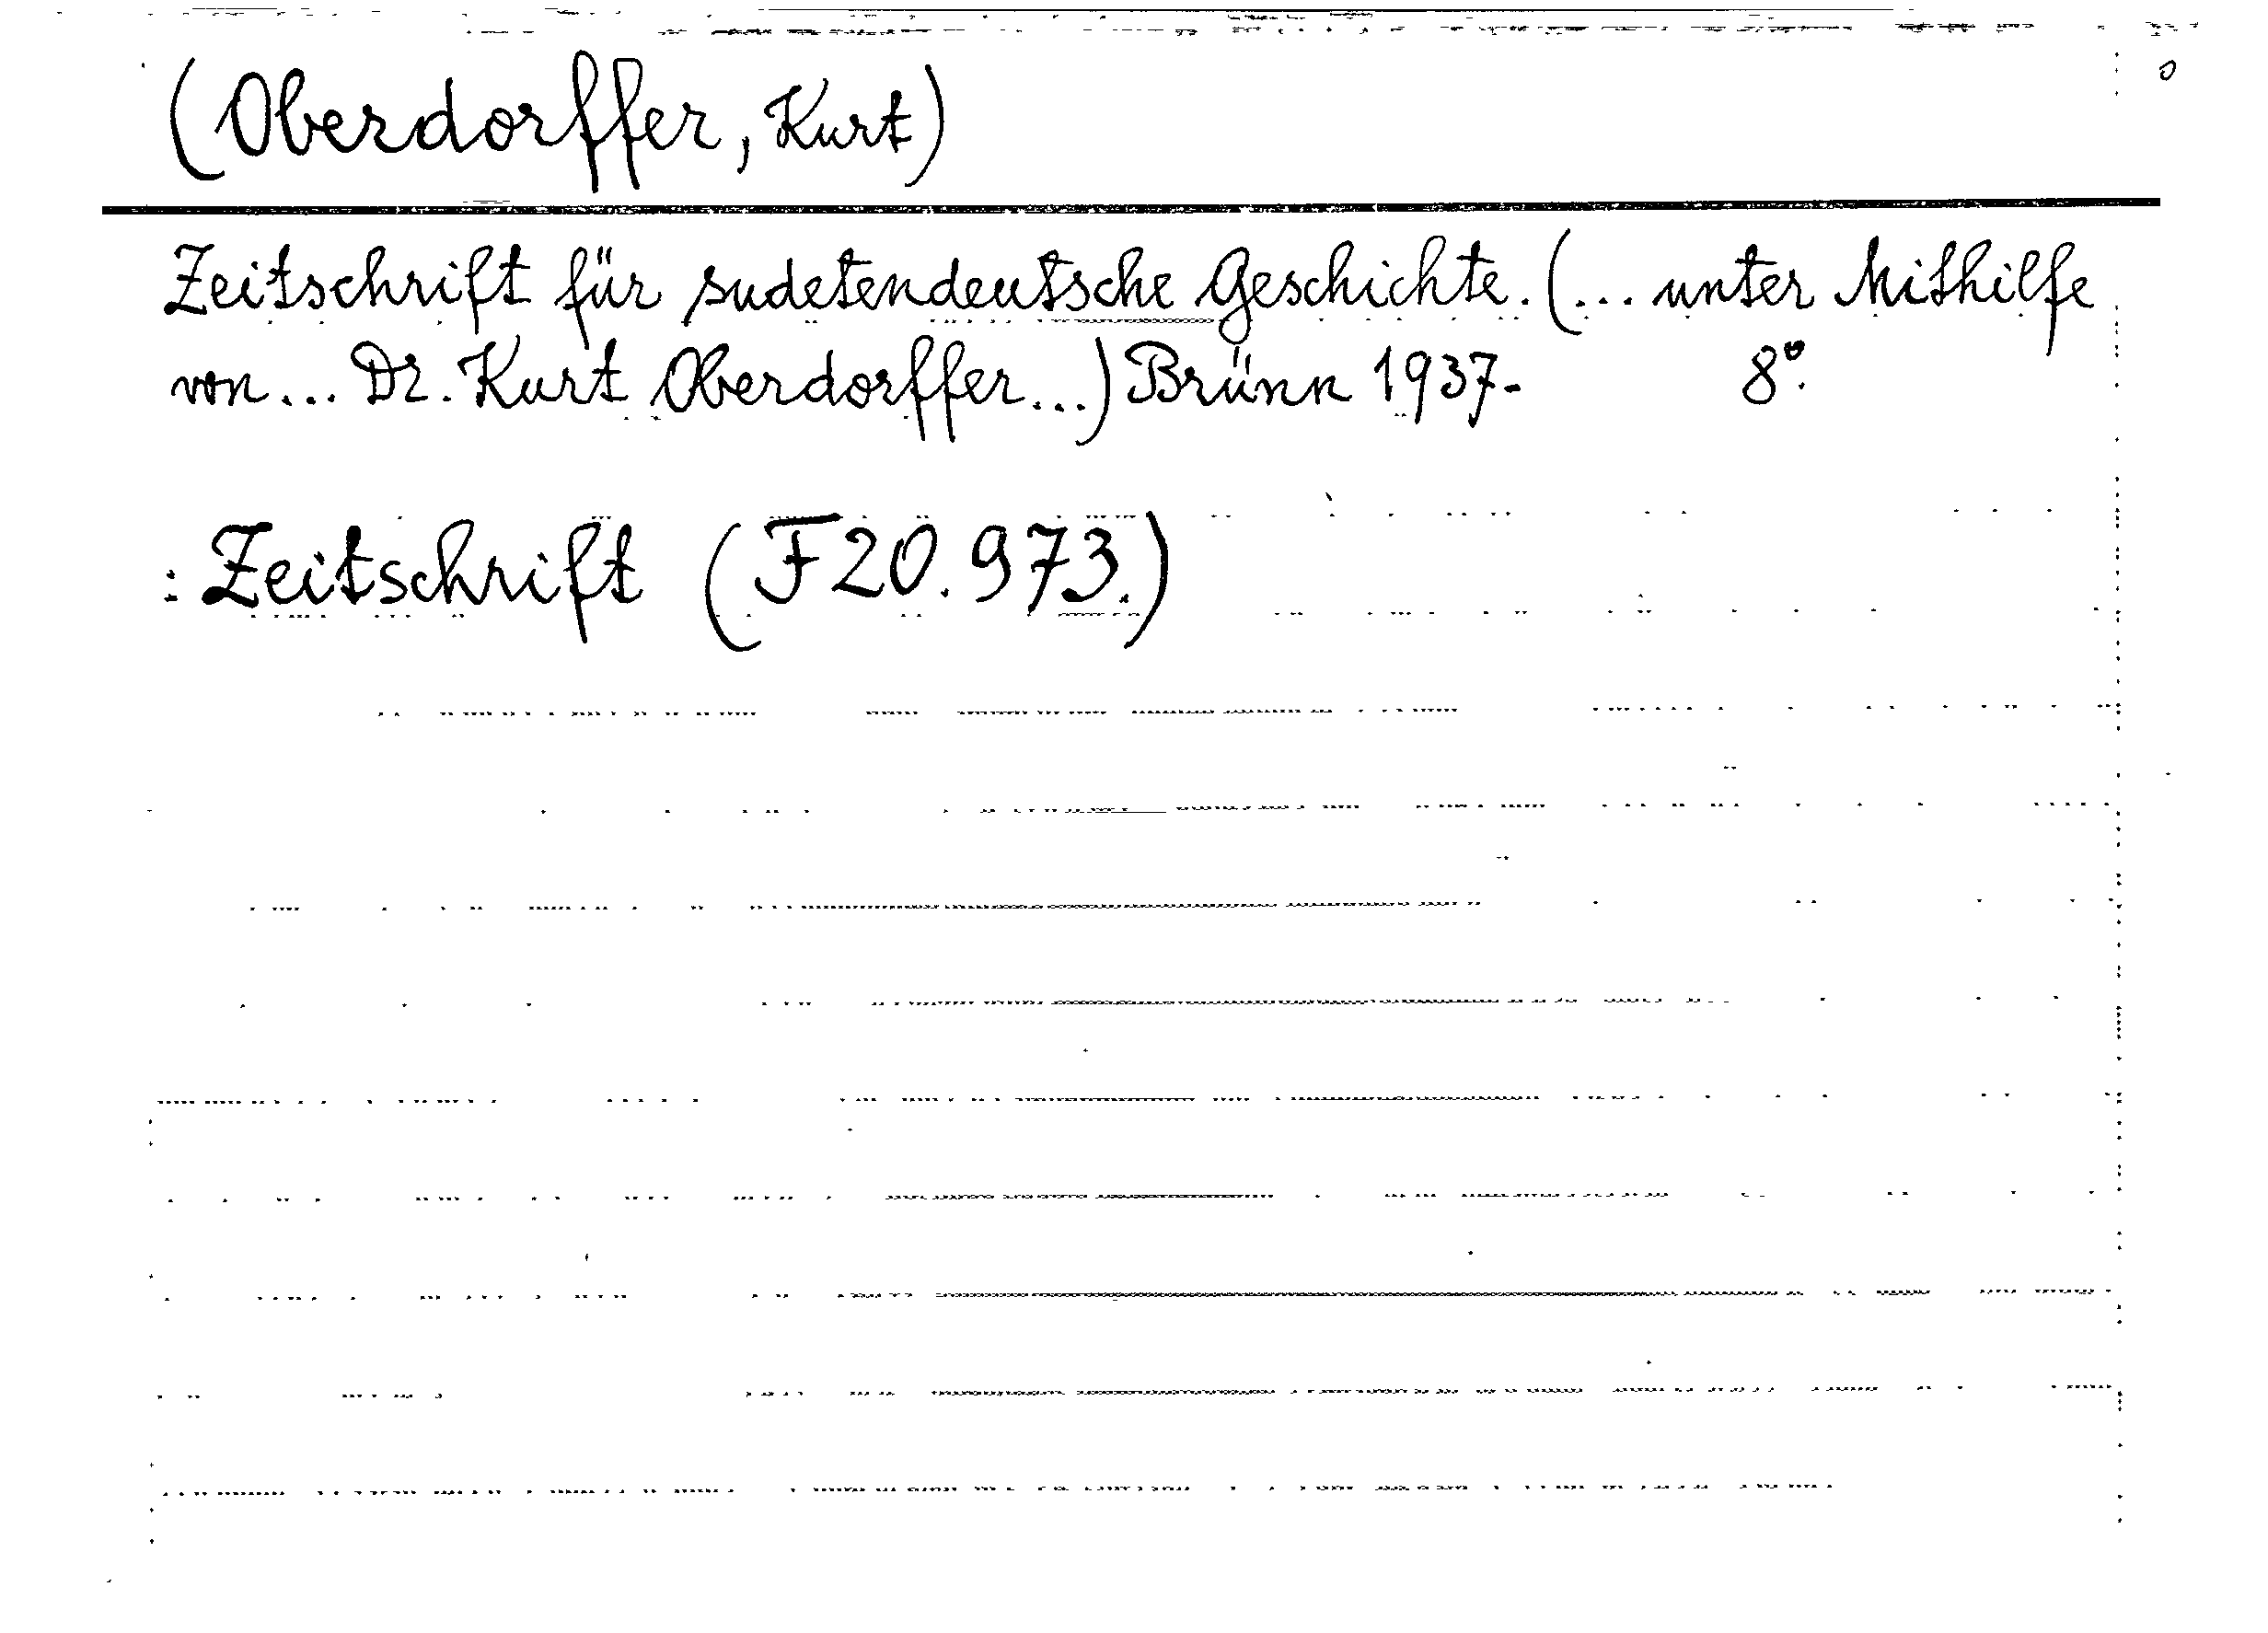 (Oberdorffer, Kurt)
Zeitschrift für sudetendeutsche Geschichte. (... unter Mithilfe
von... Dr. Kurt Oberdorffer...) Brünn 1937- 8°.
: Zeitschrift (F20.973.)